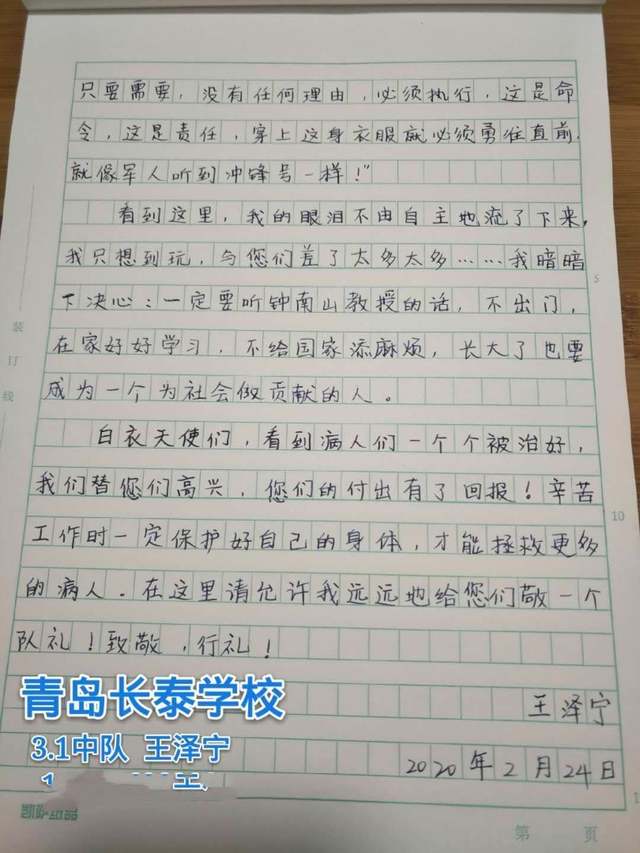 只要需要，没有任何理由，必须执行，这是命
令，这是责任，穿上这身衣服就必须勇往直前，
就像军人听到冲锋号一样！”
看到这里，我的眼泪不由自主地流了下来，
我只想到玩，与您们差了太多太多……我暗暗
下决心：一定要听钟南山教授的话，不出门，
在家好好学习，不给国家添麻烦，长大了也要
成为一个为社会做贡献的人。
白衣天使们，看到病人们一个个被治好，
我们替您们高兴，您们的付出有了回报！辛苦
工作时一定保护好自己的身体，才能拯救更多
的病人。在这里请允许我远远地给您们敬一个
队礼！致敬，行礼！
王泽宁
2020年2月24日
青岛长泰学校
3.1中队 王泽宁
装
订
线
5
10
第 页